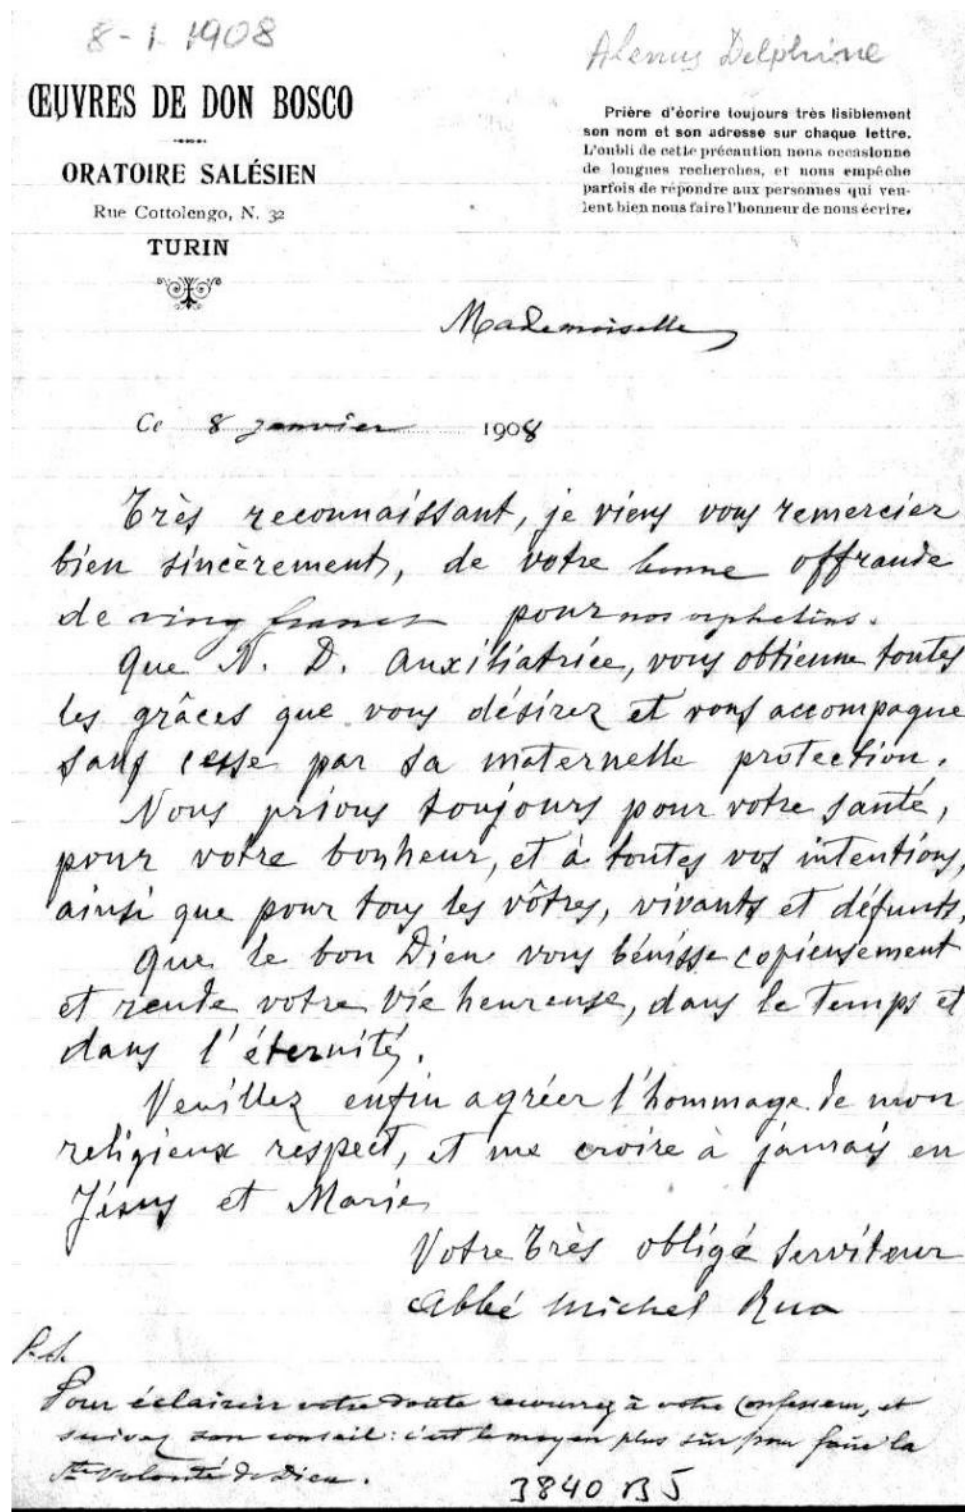 8-1-1908
Alenus Delphine
ŒUVRES DE DON BOSCO
ORATOIRE SALÉSIEN
Rue Cottolengo, N. 32
TURIN
Prière d'écrire toujours très lisiblement
son nom et son adresse sur chaque lettre.
L'oubli de cette précaution nous occasionne
de longues recherches, et nous empêche
parfois de répondre aux personnes qui veu-
lent bien nous faire l'honneur de nous écrire.
Mademoiselle
Ce 8 janvier 1908
Très reconnaissant, je viens vous remercier
bien sincèrement, de votre bonne offrande
de francs pour nos orphelins.
Que N. D. Auxiliatrice, vous obtienne toutes
les grâces que vous désirez et vous accompagne
sans cesse par sa maternelle protection.
Nous prions toujours pour votre santé,
pour votre bonheur, et à toutes vos intentions,
ainsi que pour tous les vôtres, vivants et défunts.
Que le bon Dieu vous bénisse copieusement
et rende votre vie heureuse, dans le temps et
dans l'éternité.
Veuillez enfin agréer l'hommage de mon
religieux respect, et me croire à jamais en
Jésus et Marie
Votre très obligé serviteur
Abbé Michel Rua
P.S.
Pour éclaircir votre doute recourrez à votre confesseur, et
suivez son conseil: c'est le moyen plus sûr pour faire la
Ste Volonté de Dieu.
3840 B 5